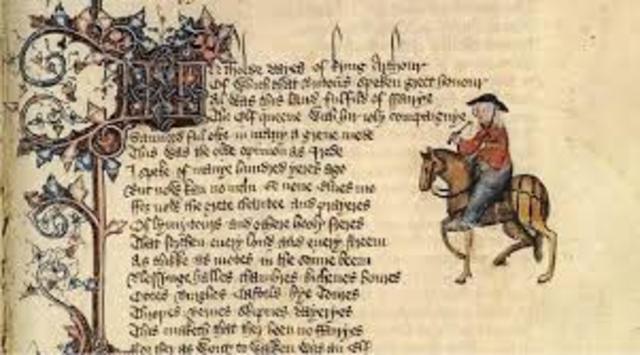 In tholde dayes of kyng Arthour
Of which that Britons speken greet honour
Al was this land fulfild of ffairye
The elf queene with hir ioly compaignye
Daunced ful ofte in many a grene mede
This was the olde opinion as I rede
I speke of manye hundred yeres ago
But now kan no man se none elves mo
ffor now the grete charitee and prayeres
Of lymytours and othere hooly freres
That serchen every lond and every streem
As thikke as motes in the sonne beem
Blessynge halles chambres kichenes boures
Citees Burghes Castels hye Toures
Thropes Bernes Shipnes Dayeryes
This maketh that ther been no ffairyes
for ther as wont to walken was an Elf